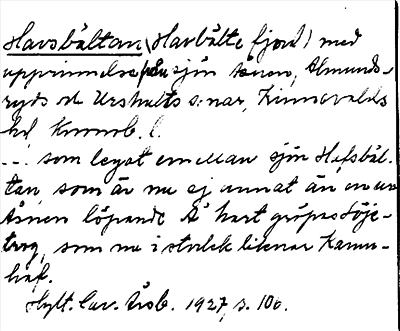 Havsbältan (Havbälte fjord) med
upprinnelse från sjön Åsnen, Almunds-
ryds o. Urshults s:nar, Kinnevalds
hd, Kronob. l.
... som legat emellan sjön Hafsbäl-
tan, som är nu ej annat än en ur
Åsnen löpande Å hart gröpes Söje-
trog, som nu i storlek liknar Kamn-
haf.
Hylt. Cav. Årsb. 1927, s. 100.